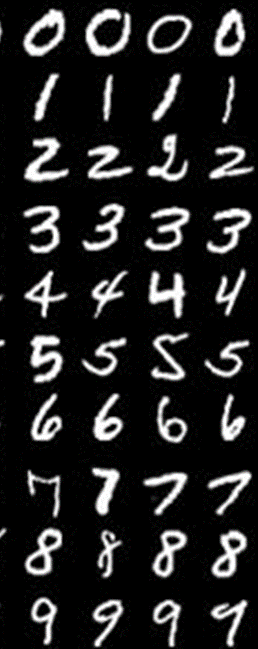 0 0 0 0
1 1 1 1
2 2 2 2
3 3 3 3
4 4 4 4
5 5 5 5
6 6 6 6
7 7 7 7
8 8 8 8
9 9 9 9